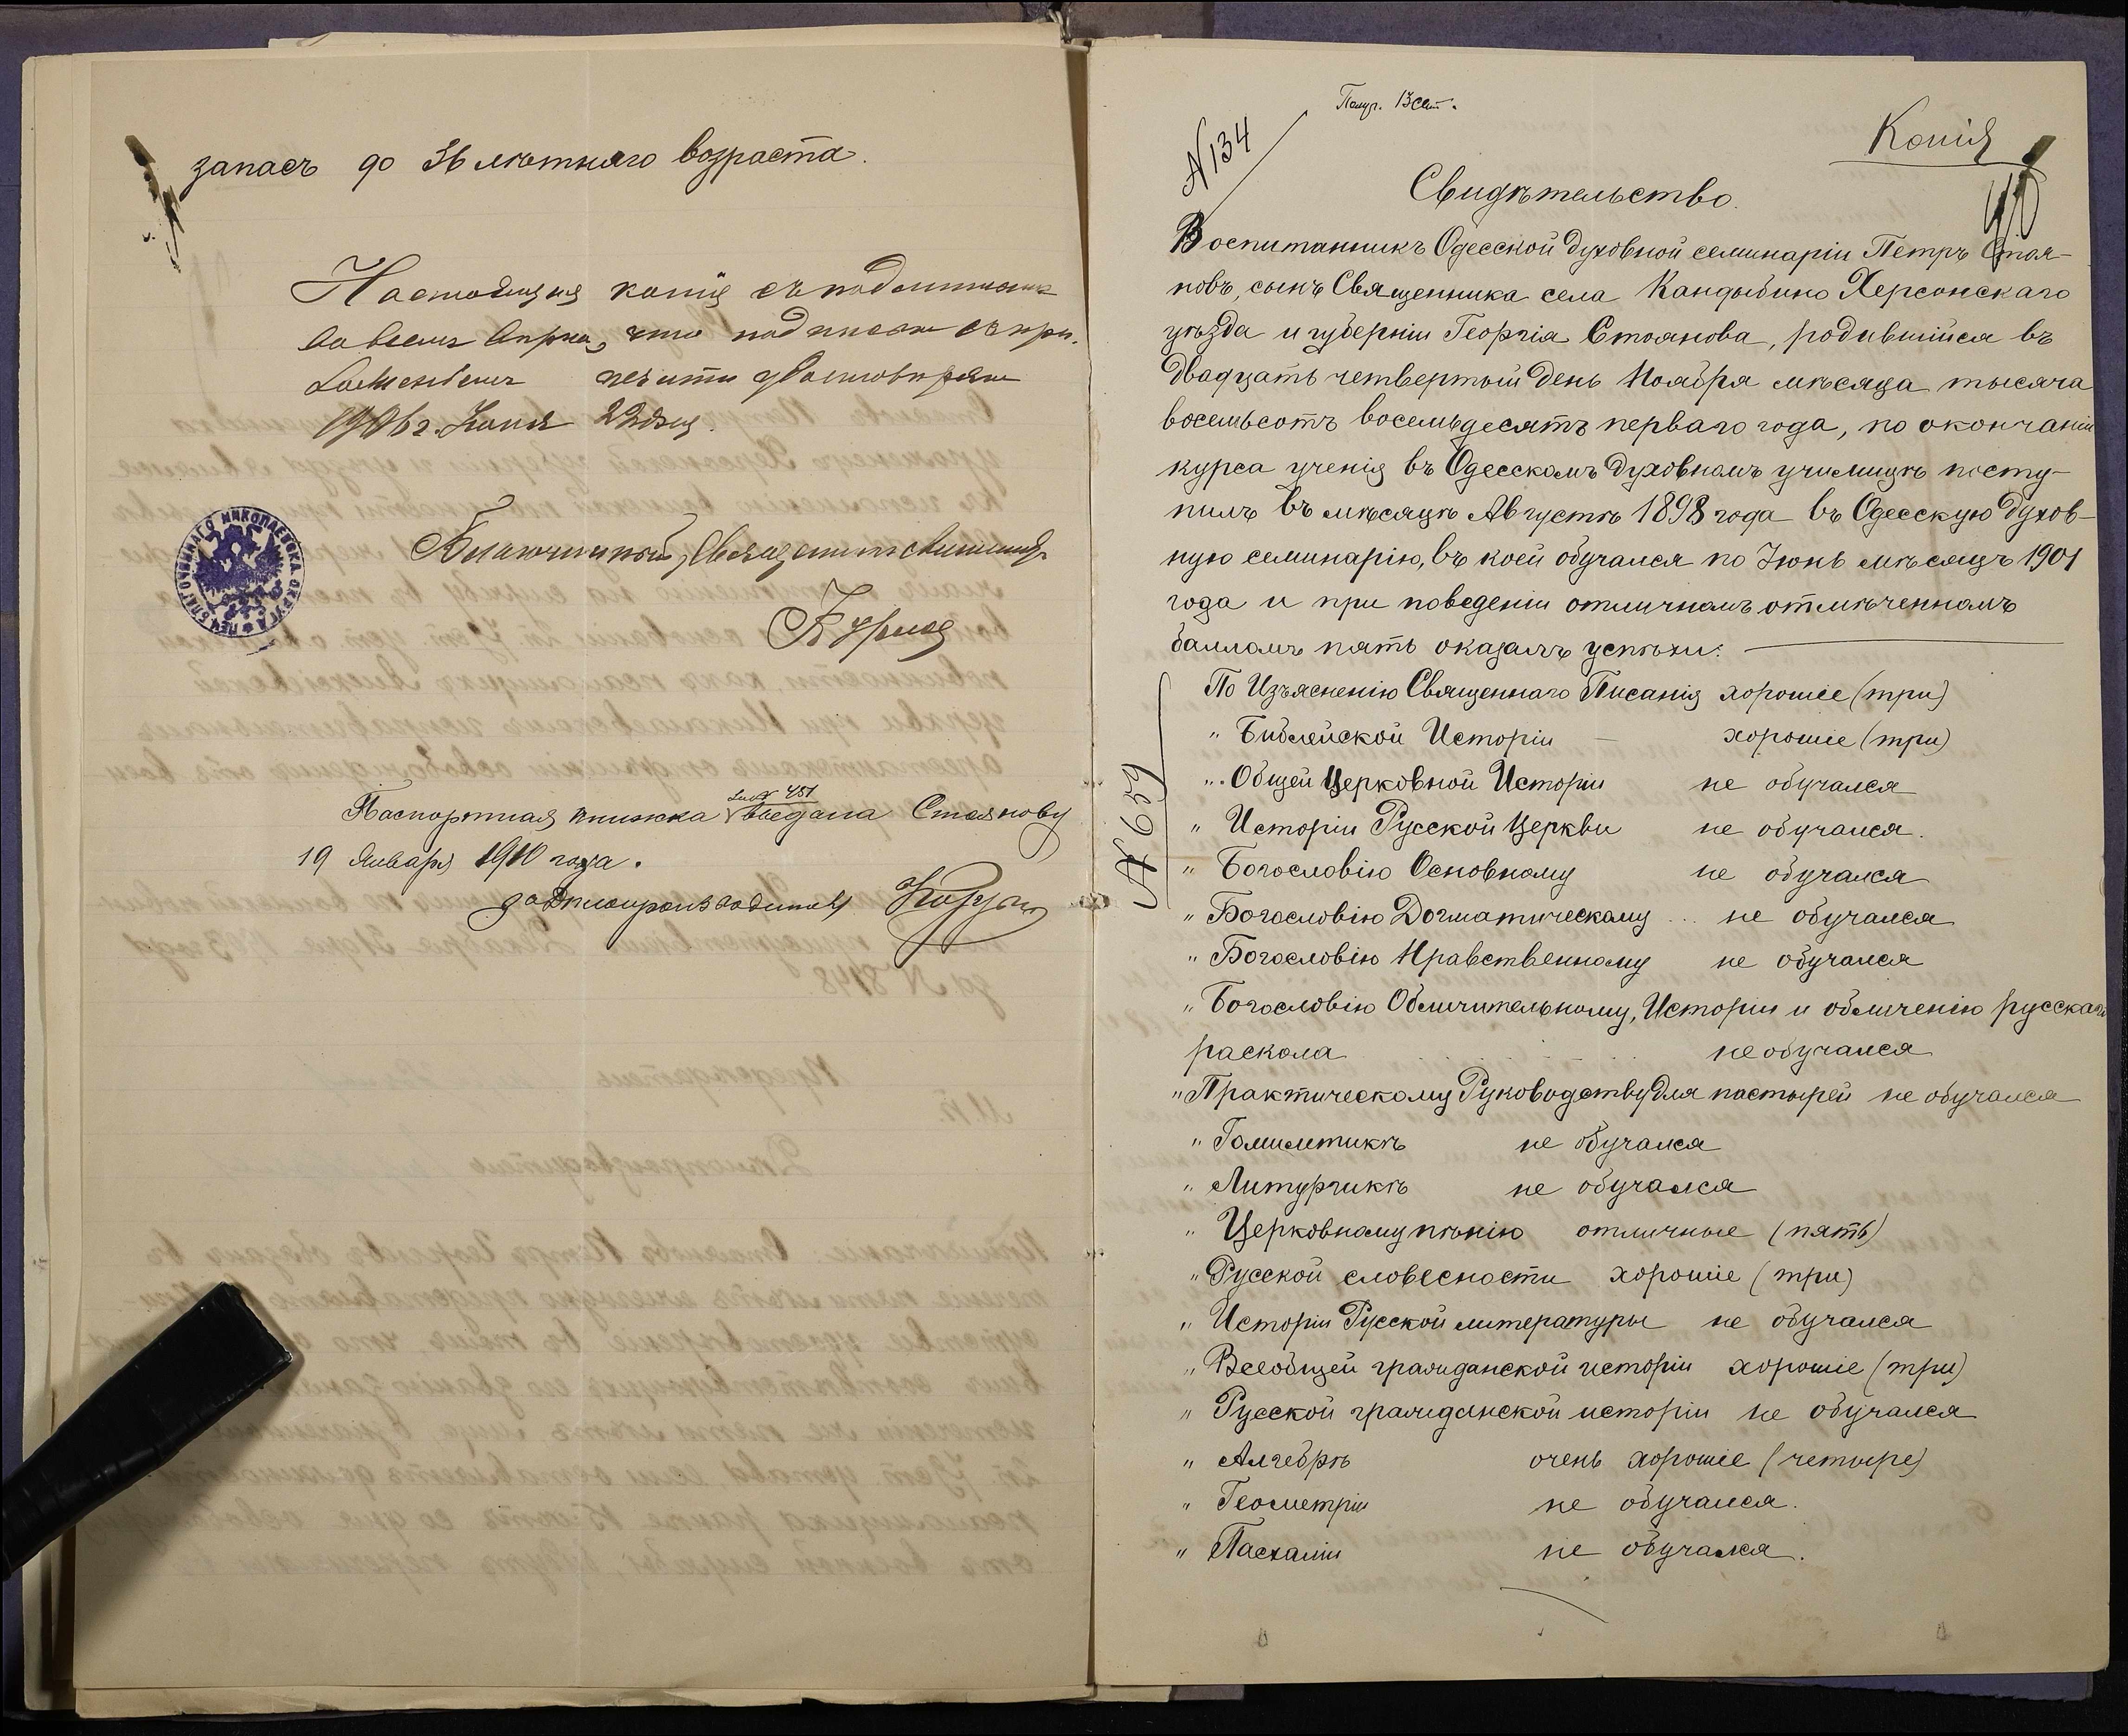 запасъ до 36 лѣтняго возраста.
Настоящая копія съ подлиннымъ
во всемъ вѣрна, что подписью съ при-
ложеніемъ печати удостовѣряю
1906 г. Іюня 22 дня.
Благочинный, Священникъ
ПЕЧ. БЛАГОЧИННАГО НИКОЛАЕВСКА. ОКРУГА
Паспортная книжка за № 451 выдана Стоянову
19 Января 1910 года.
за Дѣлопроизводителя
Копія
№ 134
Свидѣтельство.
Воспитанникъ Одесской духовной семинаріи Петръ Стоя-
новъ, сынъ Священника села Кандыбино Херсонскаго
уѣзда и губерніи Георгія Стоянова, родившійся въ
двадцать четвертый день Ноября мѣсяца тысяча
восемьсотъ восемьдесятъ перваго года, по окончаніи
курса ученія въ Одесскомъ духовномъ училищѣ посту-
пилъ въ мѣсяцѣ Августѣ 1898 года въ Одесскую духов-
ную семинарію, въ коей обучался по Іюнь мѣсяцъ 1901
года и при поведеніи отличномъ отмѣченномъ
балломъ пять оказалъ успѣхи:
По Изъясненію Священнаго Писанія хорошіе (три)
" Библейской Исторіи – хорошіе (три)
" Общей Церковной Исторіи не обучался
" Исторіи Русской Церкви не обучался.
" Богословію Основному не обучался
" Богословію Догматическому ... не обучался
" Богословію Нравственному не обучался
" Богословію Обличительному, Исторіи и обличенію русскаго
раскола не обучался
" Практическому Руководству для пастырей не обучался
" Гомилетикѣ не обучался
" Литургикѣ не обучался
" Церковному пѣнію отличные (пять)
" Русской словесности хорошіе (три)
" Исторіи Русской литературы не обучался
" Всеобщей гражданской исторіи хорошіе (три)
" Русской гражданской исторіи не обучался
" Алгебрѣ очень хорошіе (четыре)
" Геометріи не обучался.
" Пасхаліи не обучался.